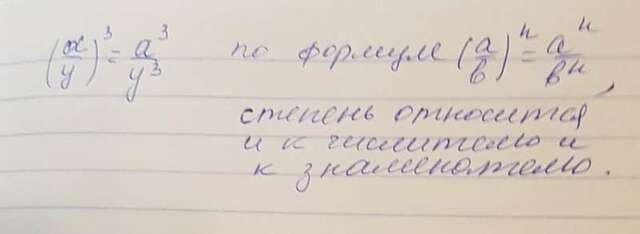 (x/y)³ = a³/y³ по формуле (a/в)ⁿ = aⁿ/вⁿ,
степень относится
и к числителю и
к знаменателю.